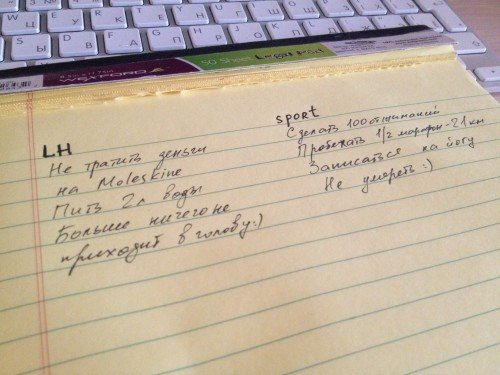 50 Sheet Legal Pad
OXFORD
LH
Не тратить деньги
на Moleskine
Пить 2л воды
Больше ничего не
приходит в голову:)
sport
Сделать 100 отжиманий
Пробежать 1/2 марафон-21 км
Записаться на йогу
Не умереть:)